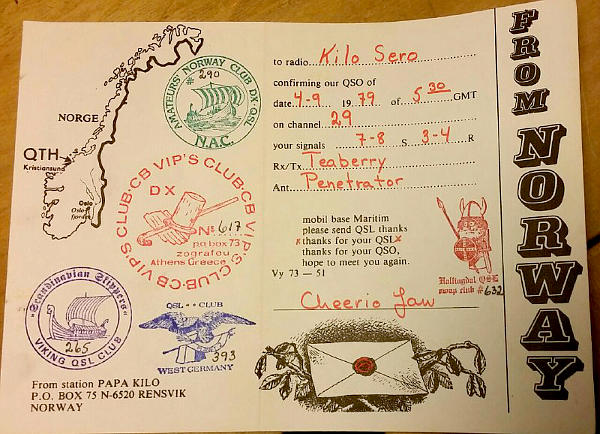 NORGE
QTH
Kristiansund
Oslo
Oslo-
fjorden
AMATEURS' NORWAY CLUB DX-QSL
290
N.A.C.
CB VIP'S CLUB·CB VIP'S CLUB·CB VIP'S CLUB·
DX
№ 617
po box 73
zografou
Athens Greece
"Scandinavian Slippers"
265
VIKING QSL CLUB
QSL ** CLUB
393
WEST GERMANY
From station PAPA KILO
P.O. BOX 75 N-6520 RENSVIK
NORWAY
to radio Kilo Sero
confirming our QSO of
date 4-9 1979 of 5 30 GMT
on channel 29
your signals 7-8 S 3-4 R
Rx/Tx Teaberry
Ant. Penetrator
mobil base Maritim
please send QSL thanks
x thanks for your QSL x
thanks for your QSO,
hope to meet you again.
Vy 73 — 51
Hallingdal QSL
swap club #632
Cheerio Jaw
FROM NORWAY